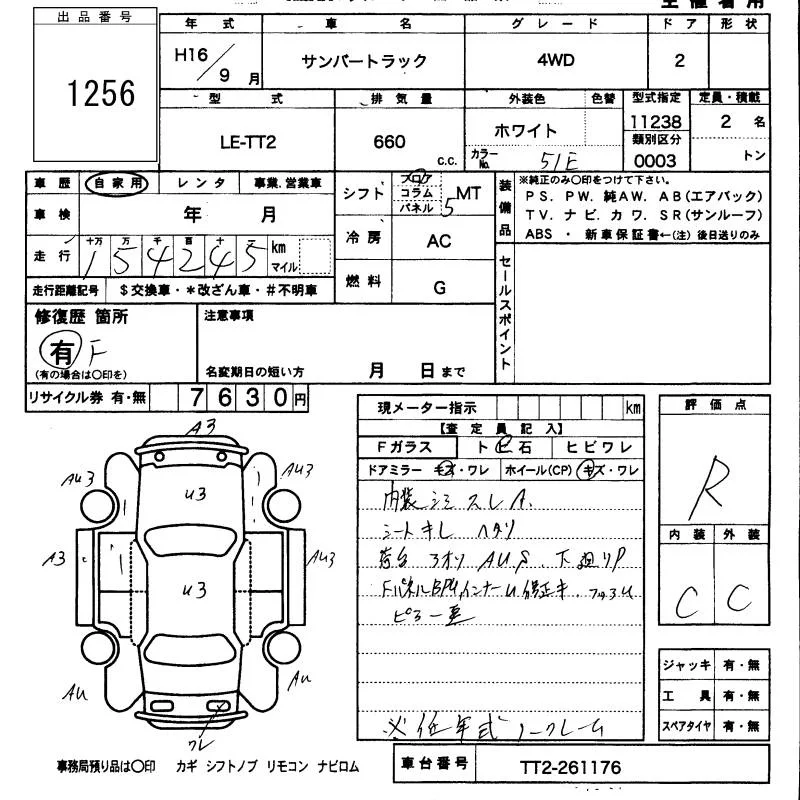 出品番号
1256
年式 車名 グレード ドア 形状
H16/9月 サンバートラック 4WD 2
型式 排気量 外装色 色替 型式指定 定員・積載
LE-TT2 660 c.c. ホワイト 11238 2 名
類別区分
カラーNo. 51E 0003 トン
車歴 自家用 レンタ 事業.営業車
車検 年 月
走行 十万 万 千 百 十 km
154245 マイル
走行距離記号 $交換車・*改ざん車・#不明車
シフト フロア コラム パネル 5 MT
冷房 AC
燃料 G
装備品
※純正のみ〇印をつけて下さい。
PS. PW. 純AW. AB(エアバック)
TV. ナビ. カワ. SR(サンルーフ)
ABS ・ 新車保証書←(注) 後日送りのみ
セールスポイント
修復歴 箇所
有 F
(有の場合は〇印を)
注意事項
名変期日の短い方 月 日まで
リサイクル券 有・無 7630円
現メーター指示 km
【査定員記入】
Fガラス トビ石 ヒビワレ
ドアミラー キズ・ワレ ホイール(CP) キズ・ワレ
内装シミ スレ A.
シート キレ ヘタリ
荷台 3オリ AU,S. 下廻りP
※低年式 ノークレーム
評価点
R
内装 外装
C C
ジャッキ 有・無
工具 有・無
スペアタイヤ 有・無
A3
AU3 U3 AU3
A3 U3 AU3
AU AU
ワレ
事務局預り品は〇印 カギ シフトノブ リモコン ナビロム
車台番号 TT2-261176